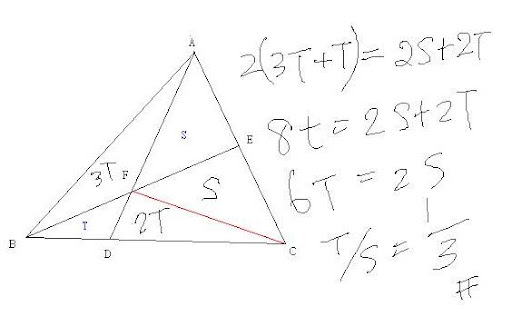 A
2(3T+T)=2S+2T
S
E
8t=2S+2T
3T
F
S
6T=2S
T
2T
B
D
C
T/S=1/3
#